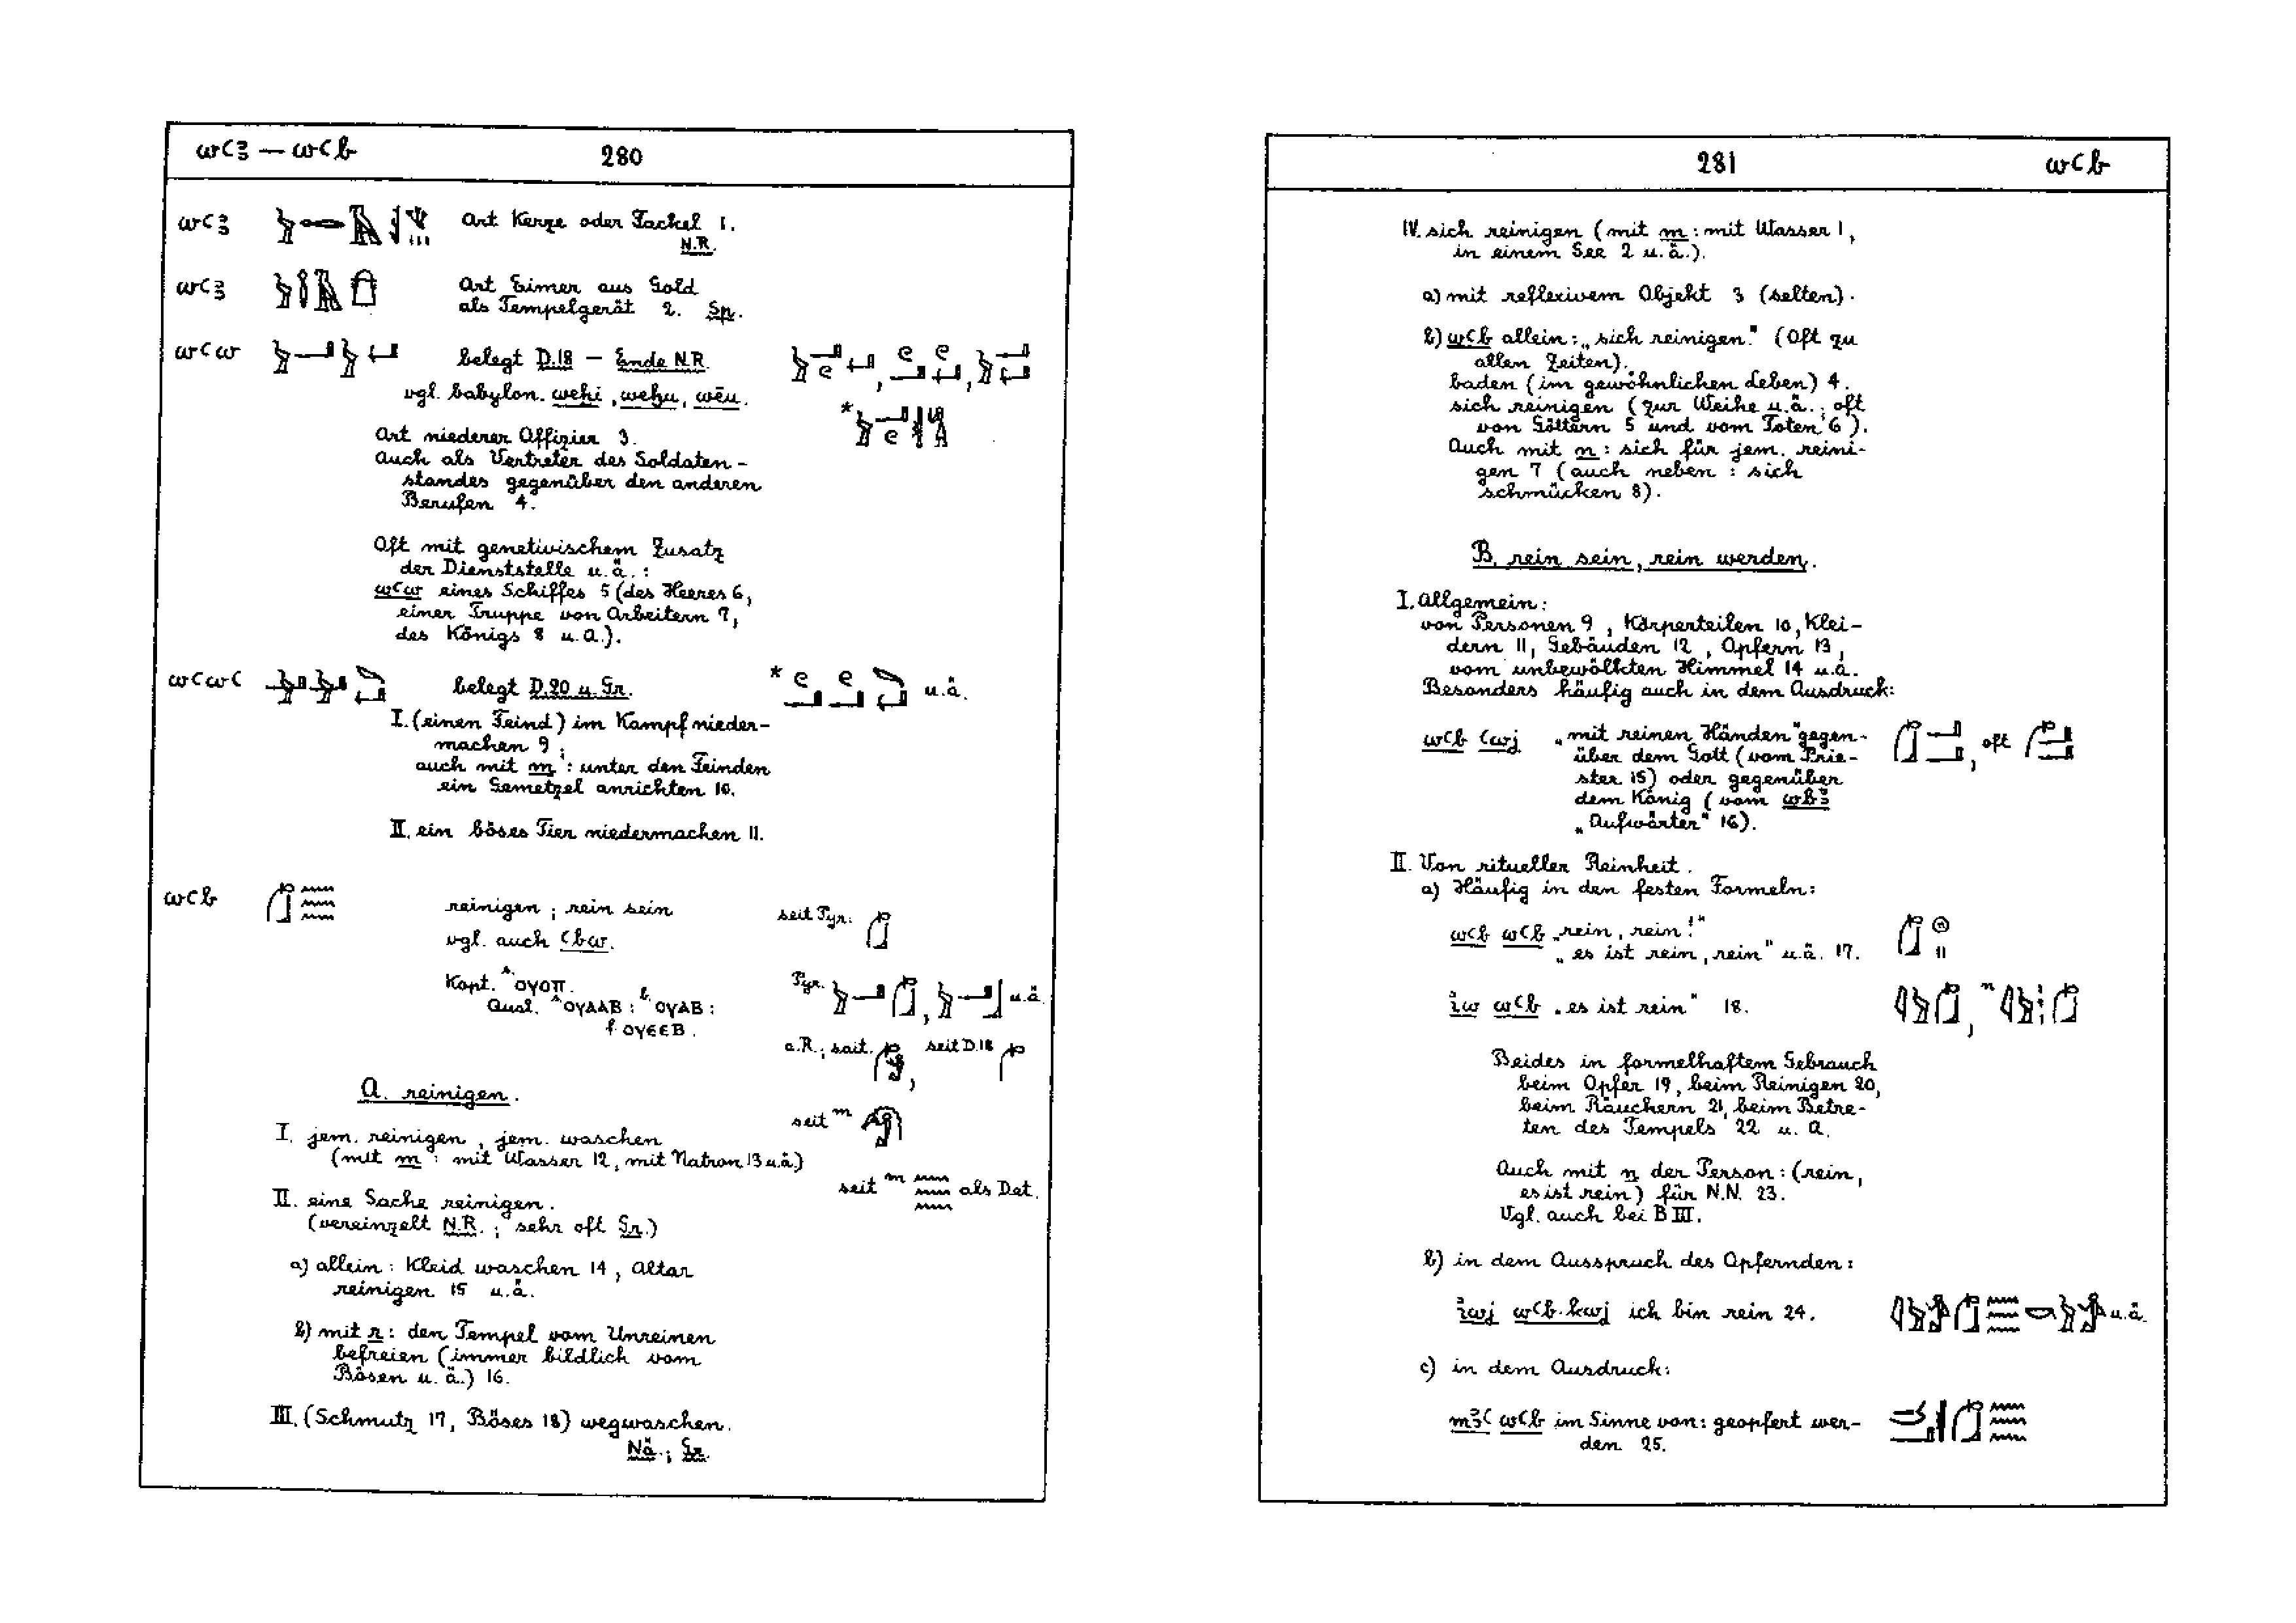 wꜥꜣ — wꜥb 280
wꜥꜣ Art Kerze oder Fackel 1.
N.R.
wꜥꜣ Art Eimer aus Gold
als Tempelgerät 2. Sp.
wꜥw belegt D.18 — Ende N.R.
vgl. babylon. weḫi, weḫu, wēu.
Art niederer Offizier 3.
Auch als Vertreter des Soldaten-
standes gegenüber den anderen
Berufen 4.
Oft mit genetivischem Zusatz
der Dienststelle u.ä.:
wꜥw eines Schiffes 5 (des Heeres 6,
einer Truppe von Arbeitern 7,
des Königs 8 u.a.).
wꜥwꜥ belegt D.20 u. Gr. u.ä.
I. (einen Feind) im Kampf nieder-
machen 9;
auch mit m: unter den Feinden
ein Gemetzel anrichten 10.
II. ein böses Tier niedermachen 11.
wꜥb reinigen; rein sein seit Pyr.
vgl. auch ꜥbw.
Kopt. ᔆ·ⲟⲩⲟⲡ. Pyr. u.ä.
Qual. ᔆ·ⲟⲩⲁⲁⲃ : ᵇ·ⲟⲩⲁⲃ :
ᶠ·ⲟⲩⲉⲉⲃ.
a.R.; sait. , seit D.18
A. reinigen.
seit m
I. jem. reinigen, jem. waschen
(mit m: mit Wasser 12, mit Natron 13 u.ä.)
seit m als Det.
II. eine Sache reinigen.
(vereinzelt N.R.; sehr oft Gr.)
a) allein: Kleid waschen 14, Altar
reinigen 15 u.ä.
b) mit r: den Tempel vom Unreinen
befreien (immer bildlich vom
Bösen u.ä.) 16.
III. (Schmutz 17, Böses 18) wegwaschen.
Nä.; Gr.
281 wꜥb
IV. sich reinigen (mit m: mit Wasser 1,
in einem See 2 u.ä.).
a) mit reflexivem Objekt 3 (selten).
b) wꜥb allein: „sich reinigen." (Oft zu
allen Zeiten).
baden (im gewöhnlichen Leben) 4.
sich reinigen (zur Weihe u.ä.; oft
von Göttern 5 und vom Toten 6).
Auch mit n: sich für jem. reini-
gen 7 (auch neben: sich
schmücken 8).
B. rein sein, rein werden.
I. Allgemein:
von Personen 9, Körperteilen 10, Klei-
dern 11, Gebäuden 12, Opfern 13,
vom unbewölkten Himmel 14 u.ä.
Besonders häufig auch in dem Ausdruck:
wꜥb ꜥwj „mit reinen Händen" gegen- , oft
über dem Gott (vom Prie-
ster 15) oder gegenüber
dem König (vom wbꜣ
„Aufwärter" 16).
II. Von ritueller Reinheit.
a) Häufig in den festen Formeln:
wꜥb wꜥb „rein, rein!"
„es ist rein, rein" u.ä. 17.
ỉw wꜥb „es ist rein" 18.
Beides in formelhaftem Gebrauch
beim Opfer 19, beim Reinigen 20,
beim Räuchern 21, beim Betre-
ten des Tempels 22 u.a.
Auch mit n der Person: (rein,
es ist rein) für N.N. 23.
Vgl. auch bei B III.
b) in dem Ausspruch des Opfernden:
ỉwj wꜥb.kwj ich bin rein 24. u.ä.
c) in dem Ausdruck:
mꜣꜥ wꜥb im Sinne von: geopfert wer-
den 25.